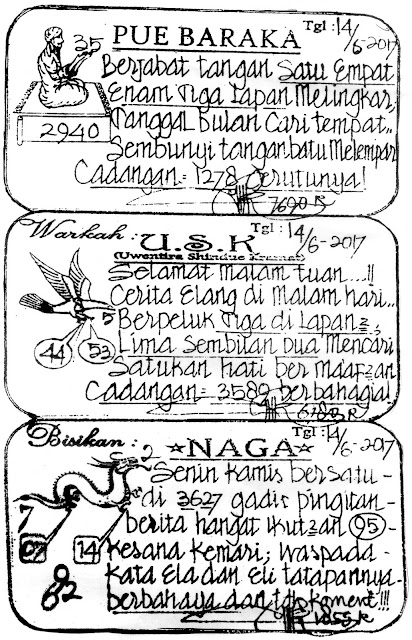 PUE BARAKA
Tgl : 14/6-2017
35
2940
Berjabat tangan Satu Empat
Enam Tiga Lapan Melingkar,
Tanggal bulan Cari tempat..
Sembunyi tangan batu Melempar
Cadangan = 1278 berutunya!
Warkah :
U.S.K
(Uwentira Shindue Kramat)
Tgl : 14/6-2017
Selamat Malam tuan....!!
Cerita Elang di Malam hari...
5
Berpeluk Tiga di Lapan2,
44 53
Lima Sembilan Dua Mencari
Satukan hati bermaaf2an
Cadangan = 3589 berbahagia!
Bisikan :
NAGA
Tgl : 14/6-2017
2
Senin Kamis bersatu -
di 3627 gadis pingitan -
7
berita hangat ikut2an 95 -
07 14
kesana kemari; waspada -
kata Ela dan Eli tatapannya -
berbahaya dan tak koment!!!